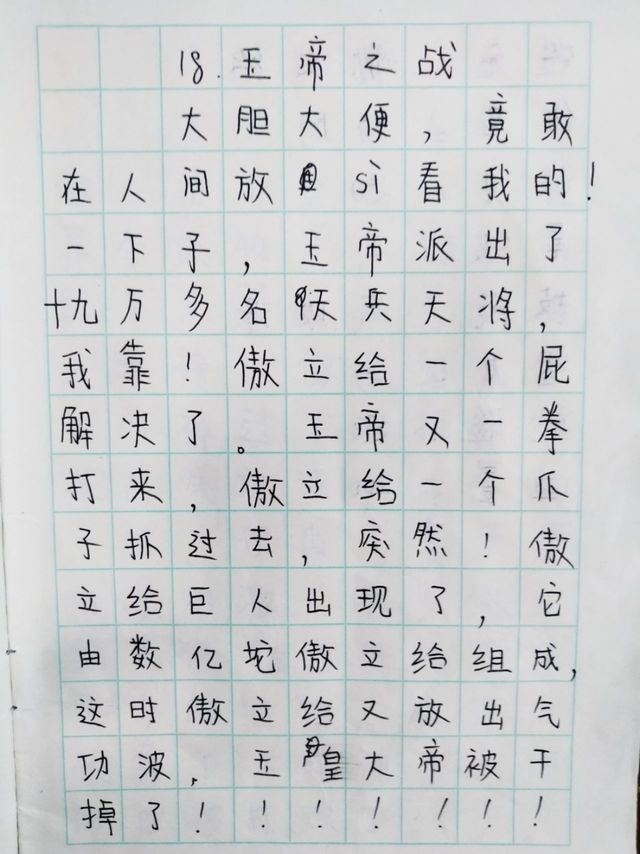 18.玉帝之战
大胆大便，竟敢
在人间放sì看我的！
一下子，玉帝派出了
十九万多名天兵天将，
我靠！傲立给一个屁
解决了。玉帝又一拳
打来，傲立给一个爪
子抓过去，突然！傲
立给巨人出现了，它
由数亿坨傲立给组成，
这时傲立给又放出气
功波，玉皇大帝被干
掉了！！！！！！！